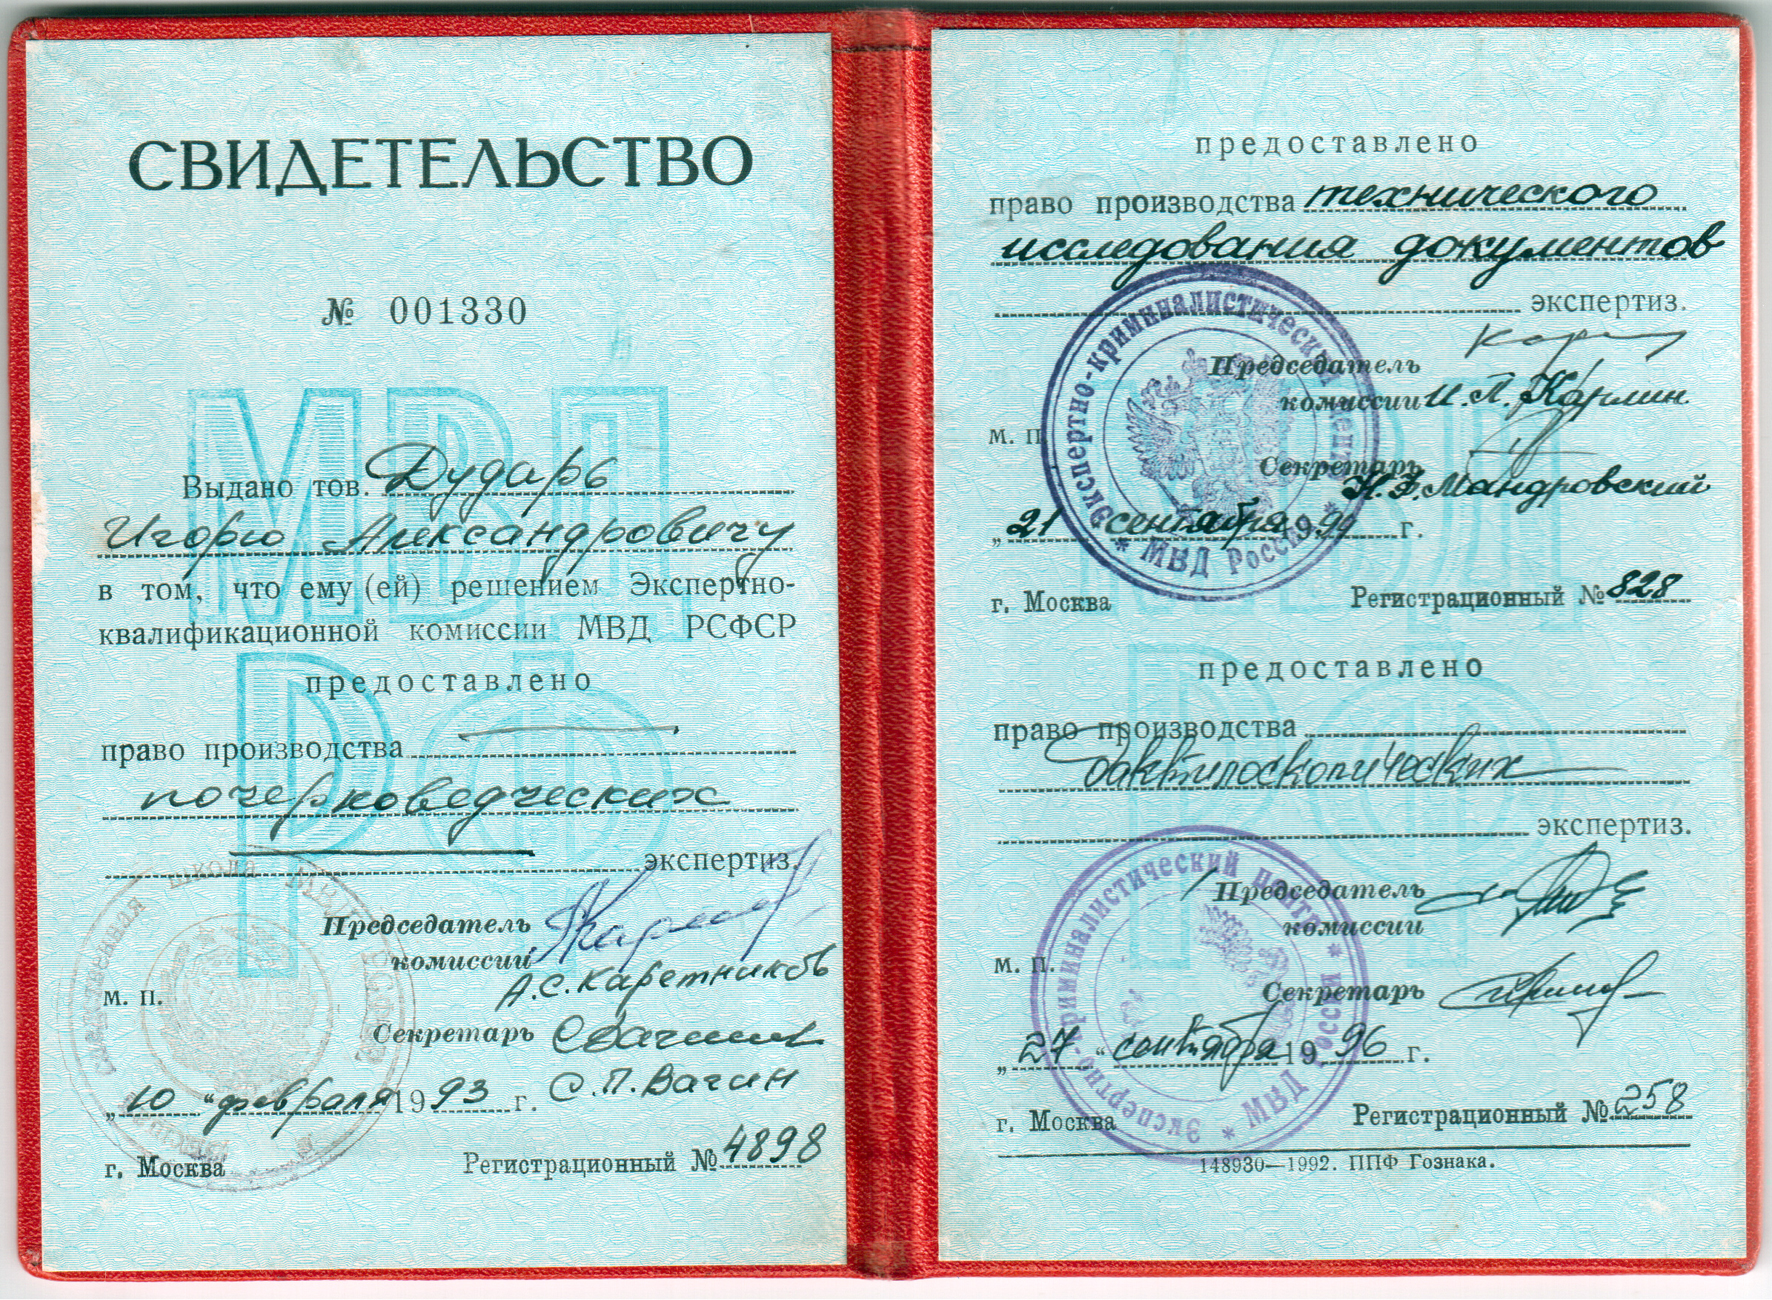 СВИДЕТЕЛЬСТВО
№ 001330
МВД
РФ
Выдано тов. Дударь
Игорю Александровичу
в том, что ему (ей) решением Экспертно-
квалификационной комиссии МВД РСФСР
предоставлено
право производства
почерковедческих
экспертиз.
Председатель
комиссии
А.С. Каретников
м. п.
Секретарь
С.П. Вагин
„10" февраля 1993 г.
г. Москва Регистрационный № 4898
предоставлено
право производства технического
исследования документов
экспертиз.
Председатель
комиссии И.П. Карлин
м. п.
Секретарь
Мандровский
„21" сентября 1994 г.
Экспертно-криминалистический центр * МВД России *
г. Москва Регистрационный № 828
предоставлено
право производства
дактилоскопических
экспертиз.
Председатель
комиссии
м. п.
Секретарь
„27" сентября 1996 г.
Экспертно-криминалистический центр * МВД России *
г. Москва Регистрационный № 258
148930—1992. ППФ Гознака.